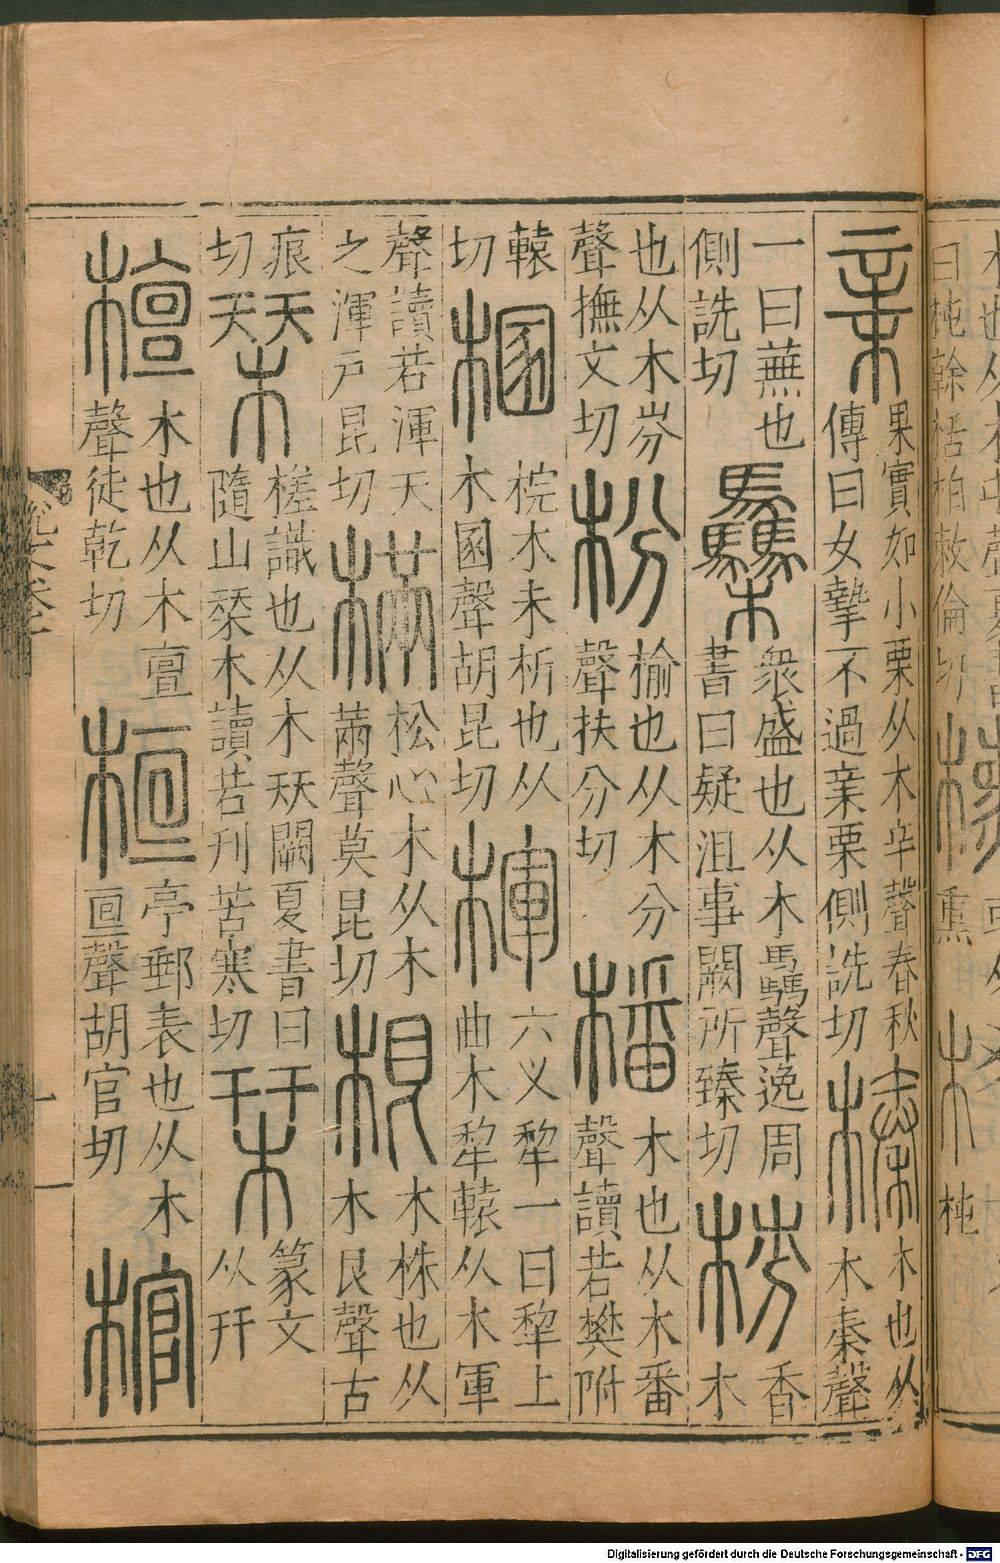 木也从木屯聲夏書
曰杶榦栝柏敕倫切
或从
熏
杶
亲
果實如小栗从木辛聲春秋
傳曰女摯不過亲栗側詵切
榛
木也从
木秦聲
一曰蕪也
側詵切
𣡌
衆盛也从木驫聲逸周
書曰疑沮事闕所臻切
梤
香
木
也从木岎
聲撫文切
枌
榆也从木分
聲扶分切
橎
木也从木番
聲讀若樊附
轅
切
棞
梡木未析也从
木圂聲胡昆切
楎
六义犂一曰犂上
曲木犂轅从木軍
聲讀若渾天
之渾戶昆切
樠
松心木从木
㒼聲莫昆切
根
木株也从
木艮聲古
痕
切
槎識也从木㺿闕夏書曰
隨山栞木讀若刊苦寒切
栞
篆文
从幵
檀
木也从木亶
聲徒乾切
桓
亭郵表也从木
亘聲胡官切
棺
Digitalisierung gefördert durch die Deutsche Forschungsgemeinschaft - DFG